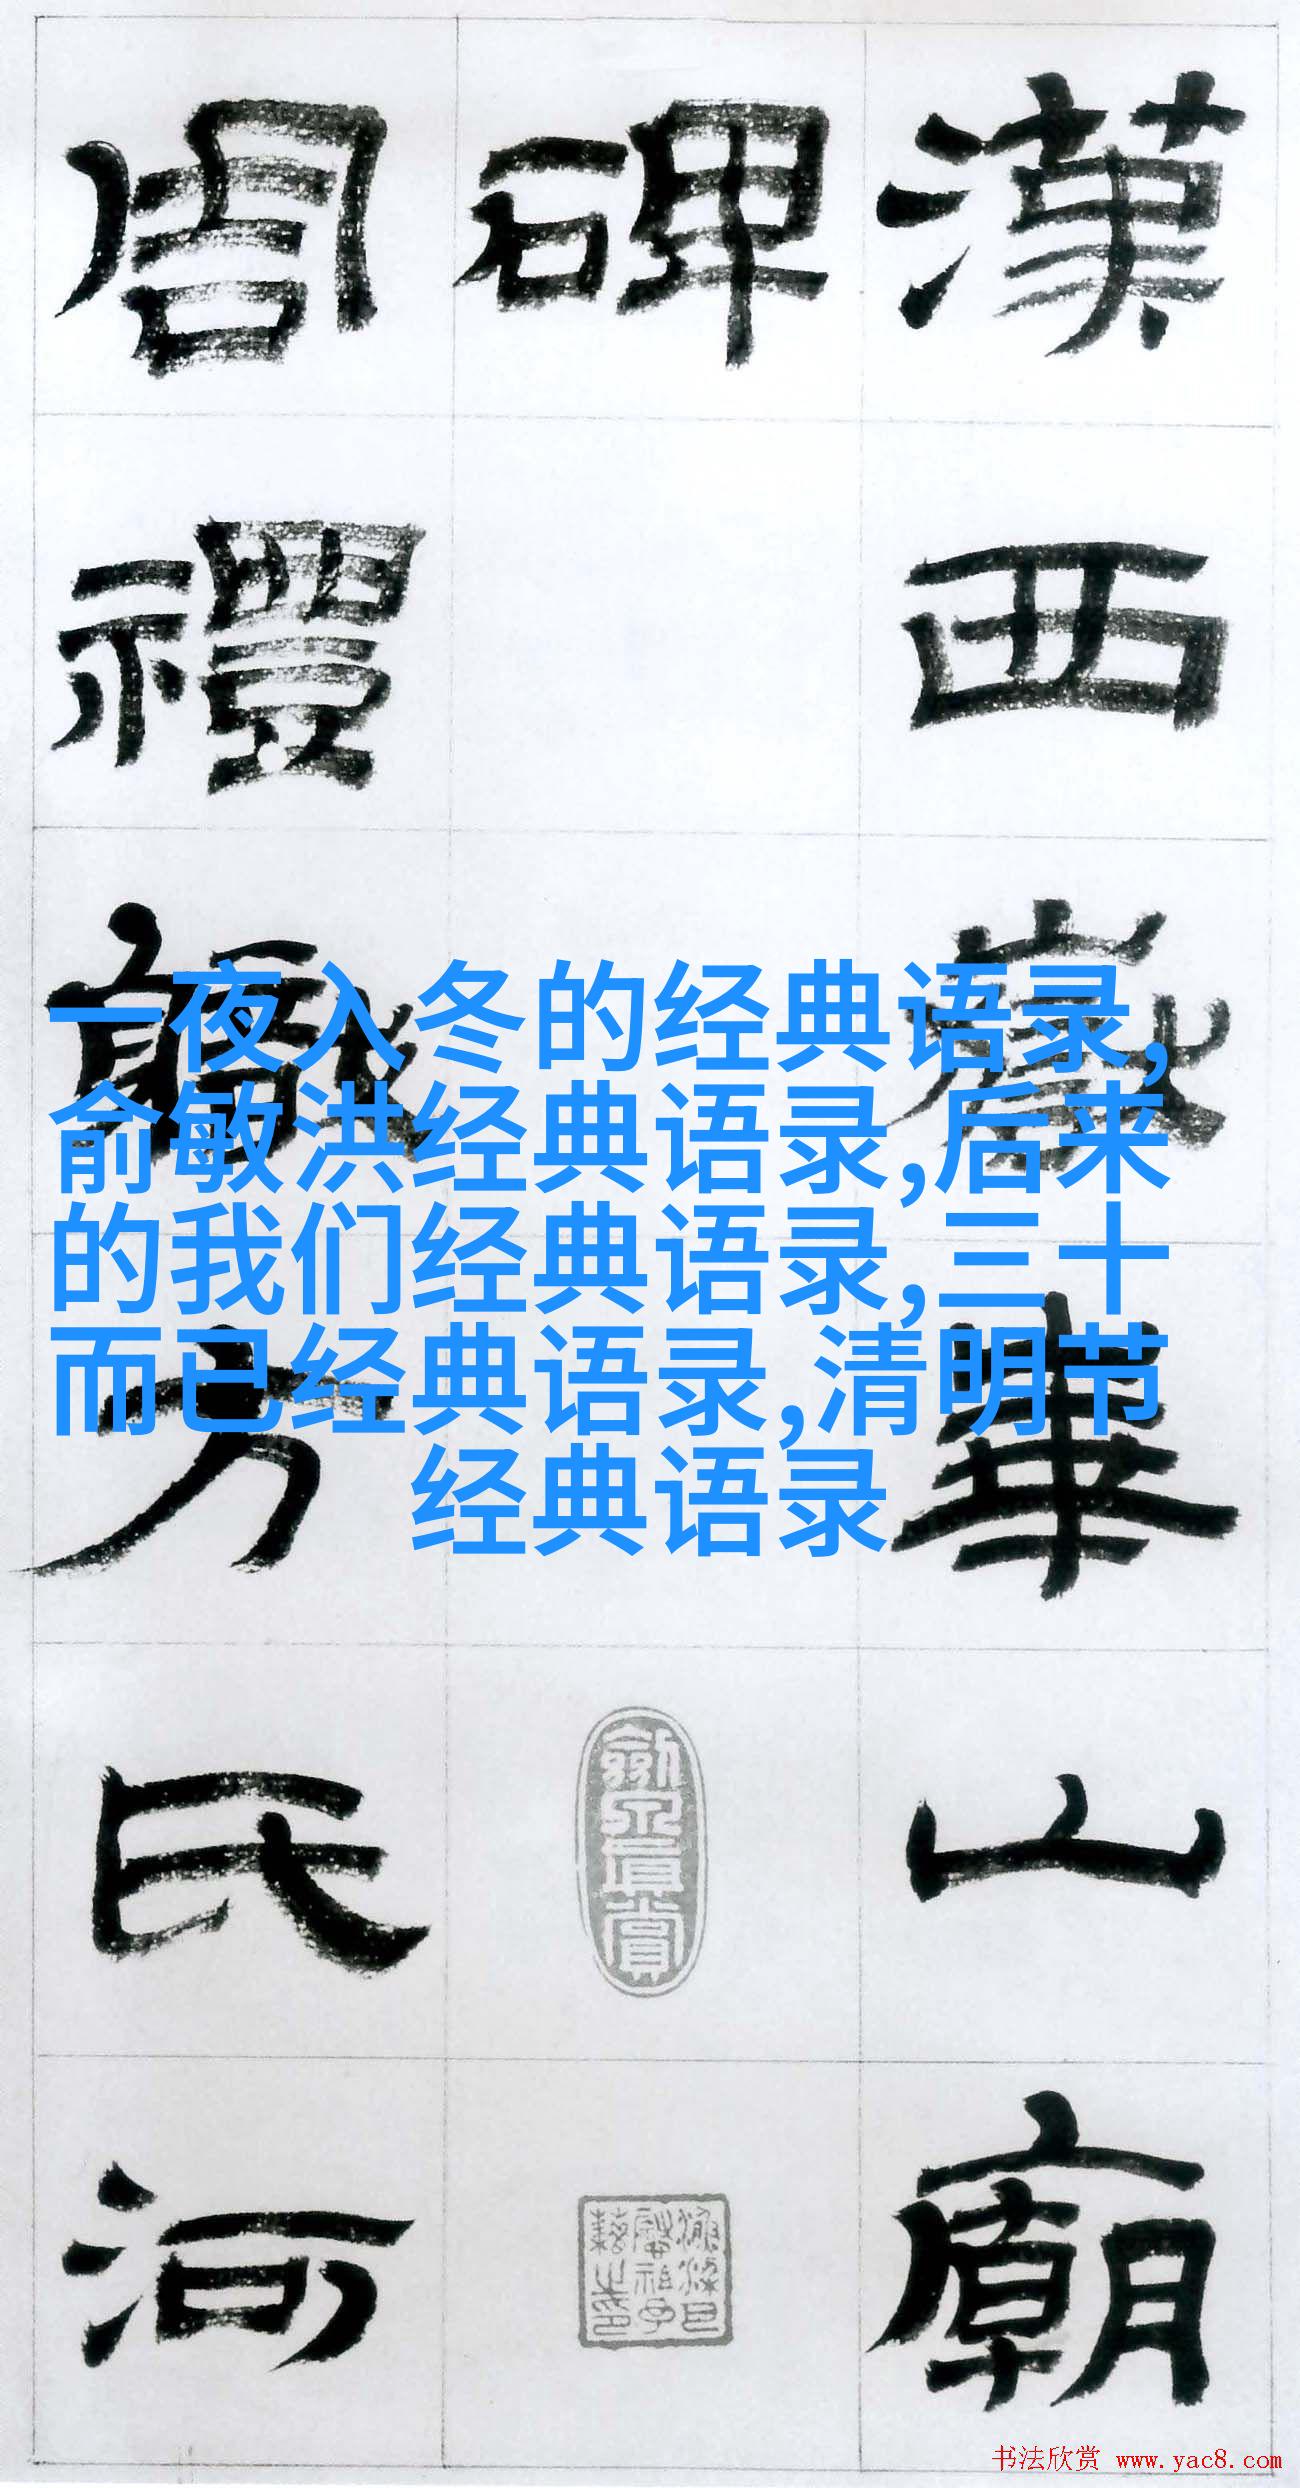 漢西嶽華山廟
碑
周禮職方氏河
一夜入冬的经典语录,
俞敏洪经典语录,后来
的我们经典语录,三十
而已经典语录,清明节
经典语录
书法欣赏 www.yac8.com